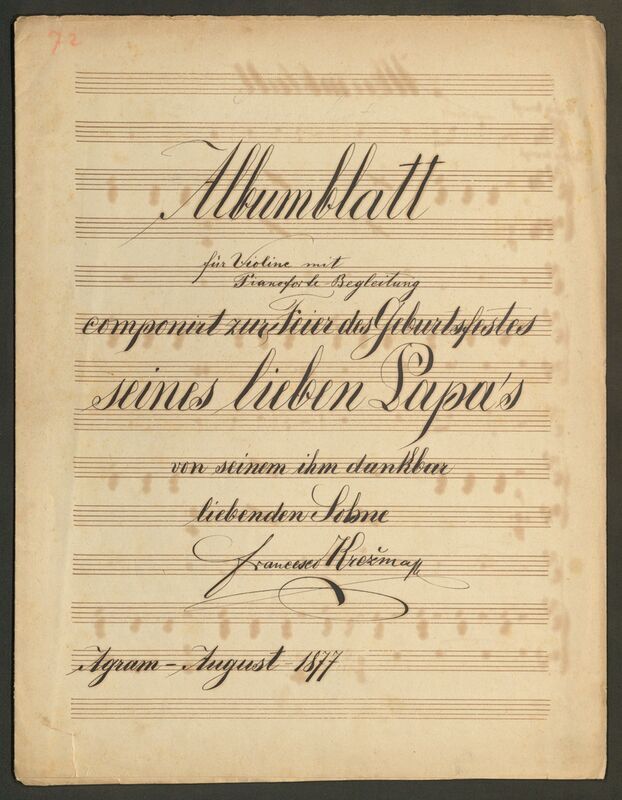 72
Albumblatt
für Violine mit
Pianoforte-Begleitung
componirt zur Feier des Geburtsfestes
seines lieben Papa's
von seinem ihm dankbar
liebenden Sohne
Francesco Krežma
Agram – August – 1877